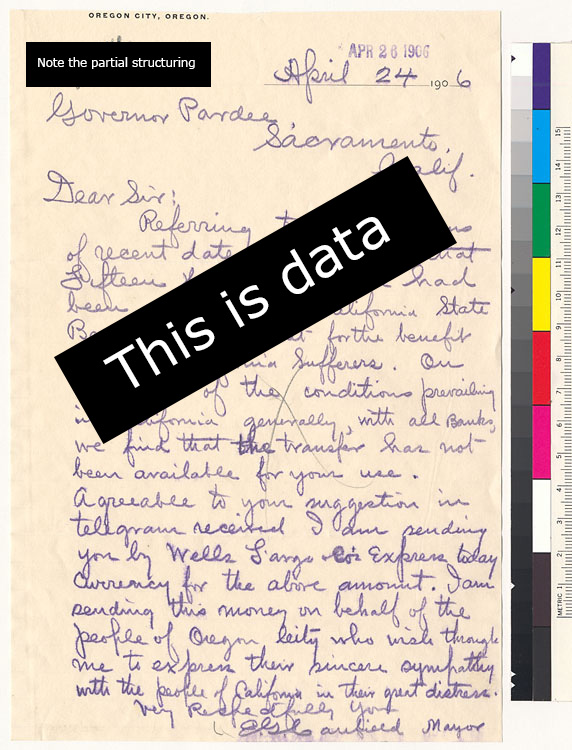 OREGON CITY, OREGON.
Note the partial structuring
APR 26 1906
April 24 1906
Governor Pardee
Sacramento,
Calif.
Dear Sir:
Referring
of recent date that
Fifteen had
been California State
for the benefit
Sufferers. On
of the conditions prevailing
in California generally, with all Banks,
we find that the transfer has not
been available for your use.
Agreeable to your suggestion in
telegram received I am sending
you by Wells Fargo Co's Express today
currency for the above amount. I am
sending this money on behalf of the
people of Oregon City who wish through
me to express their sincere sympathy
with the people of California in their great distress.
Very Respectfully Yours
Caufield Mayor
This is data
METRIC 1 2 3 4 5 6 7 8 9 10 11 12 13 14 15